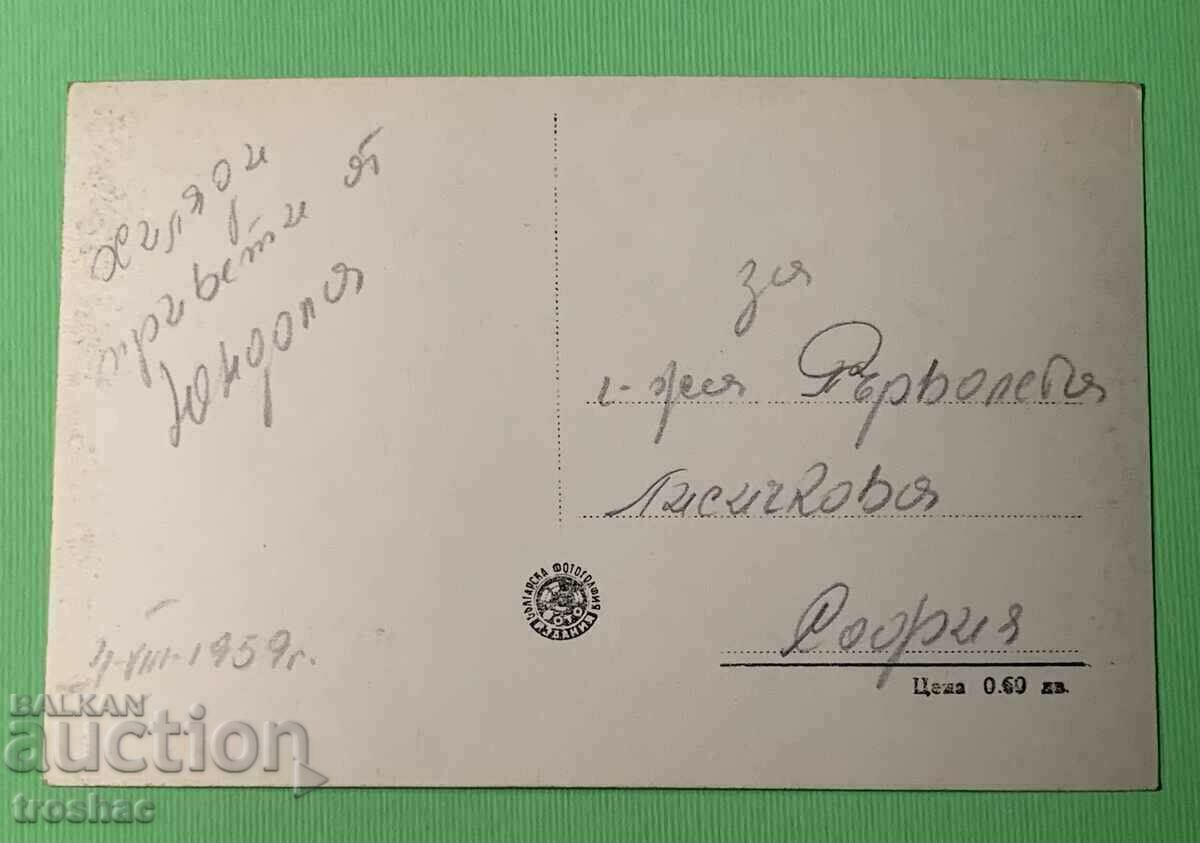 хиляди
привети от
Юндола
4-VIII-1959г.
за
г-жа Първолета
Лисичкова
София
БЪЛГАРСКА ФОТОГРАФИЯ
ИЗДАНИЕ
Цена 0.60 лв.
BALKAN
auction
troshac